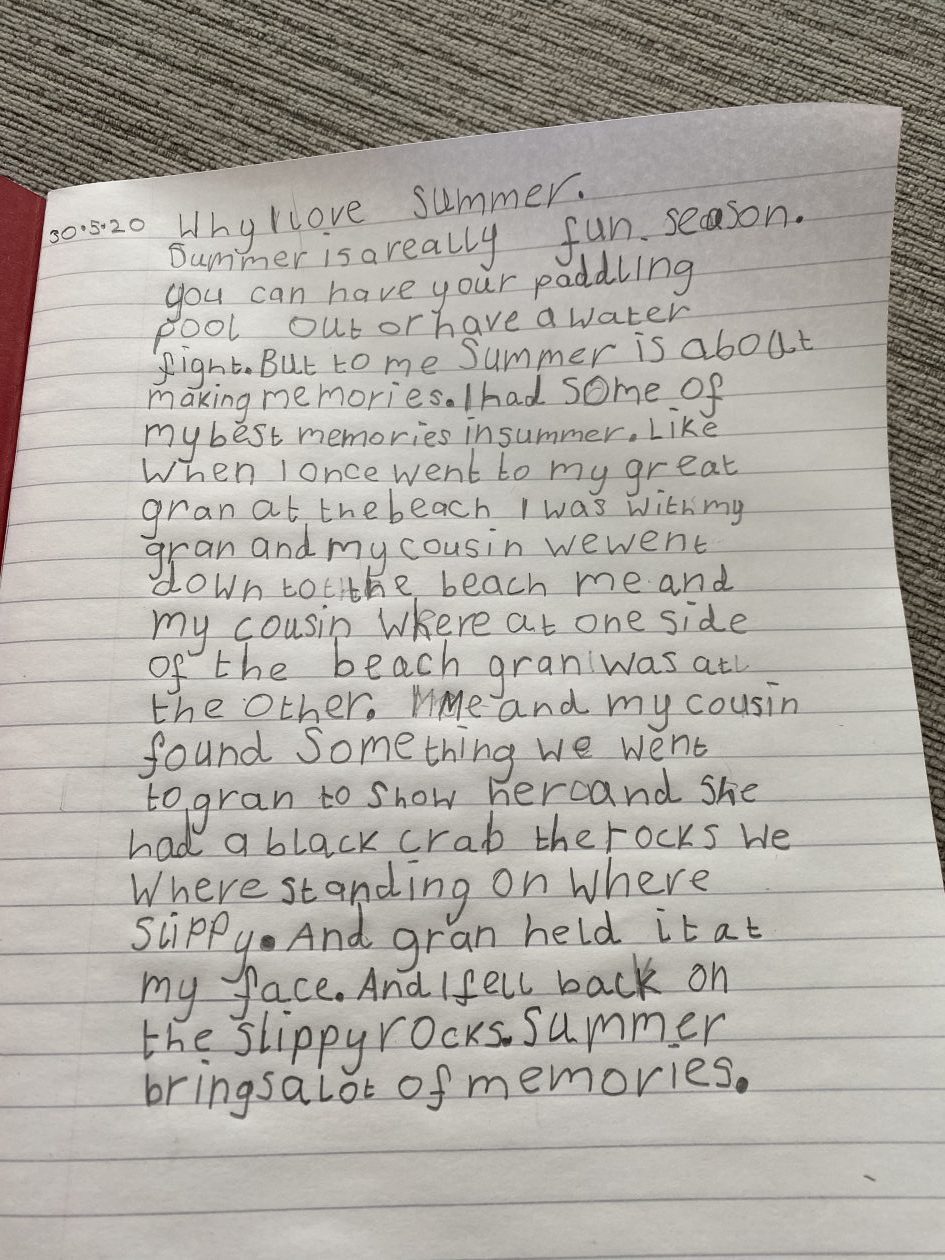 30.5.20 Why I love Summer.
Summer is a really fun season.
you can have your paddling
pool out or have a water
fight. But to me Summer is about
making memories. I had some of
my best memories in summer. Like
when I once went to my great
gran at the beach I was with my
gran and my cousin we went
down to the beach me and
my cousin where at one side
of the beach gran was at
the other. Me and my cousin
found Something we went
to gran to show her and she
had a black crab the rocks we
where standing on where
slippy. And gran held it at
my face. And I fell back on
the slippy rocks. Summer
brings a lot of memories.